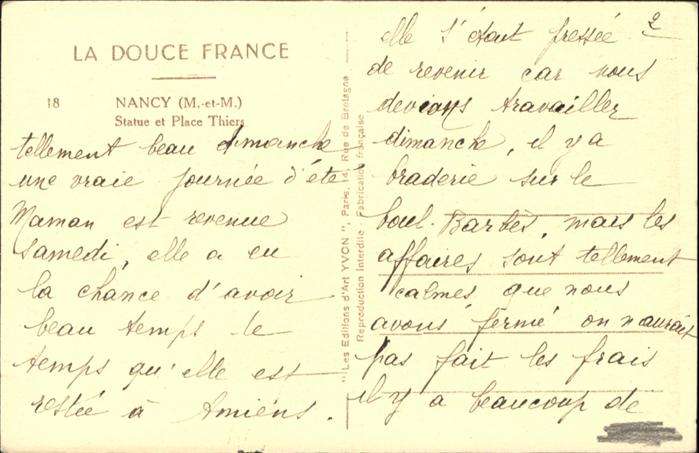 LA DOUCE FRANCE
18 NANCY (M.-et-M.)
Statue et Place Thiers
tellement beau dimanche
une vraie journée d'été
Maman est revenue
samedi, elle a eu
la chance d'avoir
beau temps le
temps qu'elle est
restée à Amiéns.
"Les Editions d'Art YVON", Paris, 14, Rue de Bretagne
Reproduction Interdite Fabrication française
2
elle s'étaut pressée
de revenir car nous
devions travailler
dimanche, il y a
braderie sur le
boul. Barbès, mais les
affaires sont tellement
calmes, que nous
avons fermé on n'aurait
pas fait les frais
il y a beaucoup de